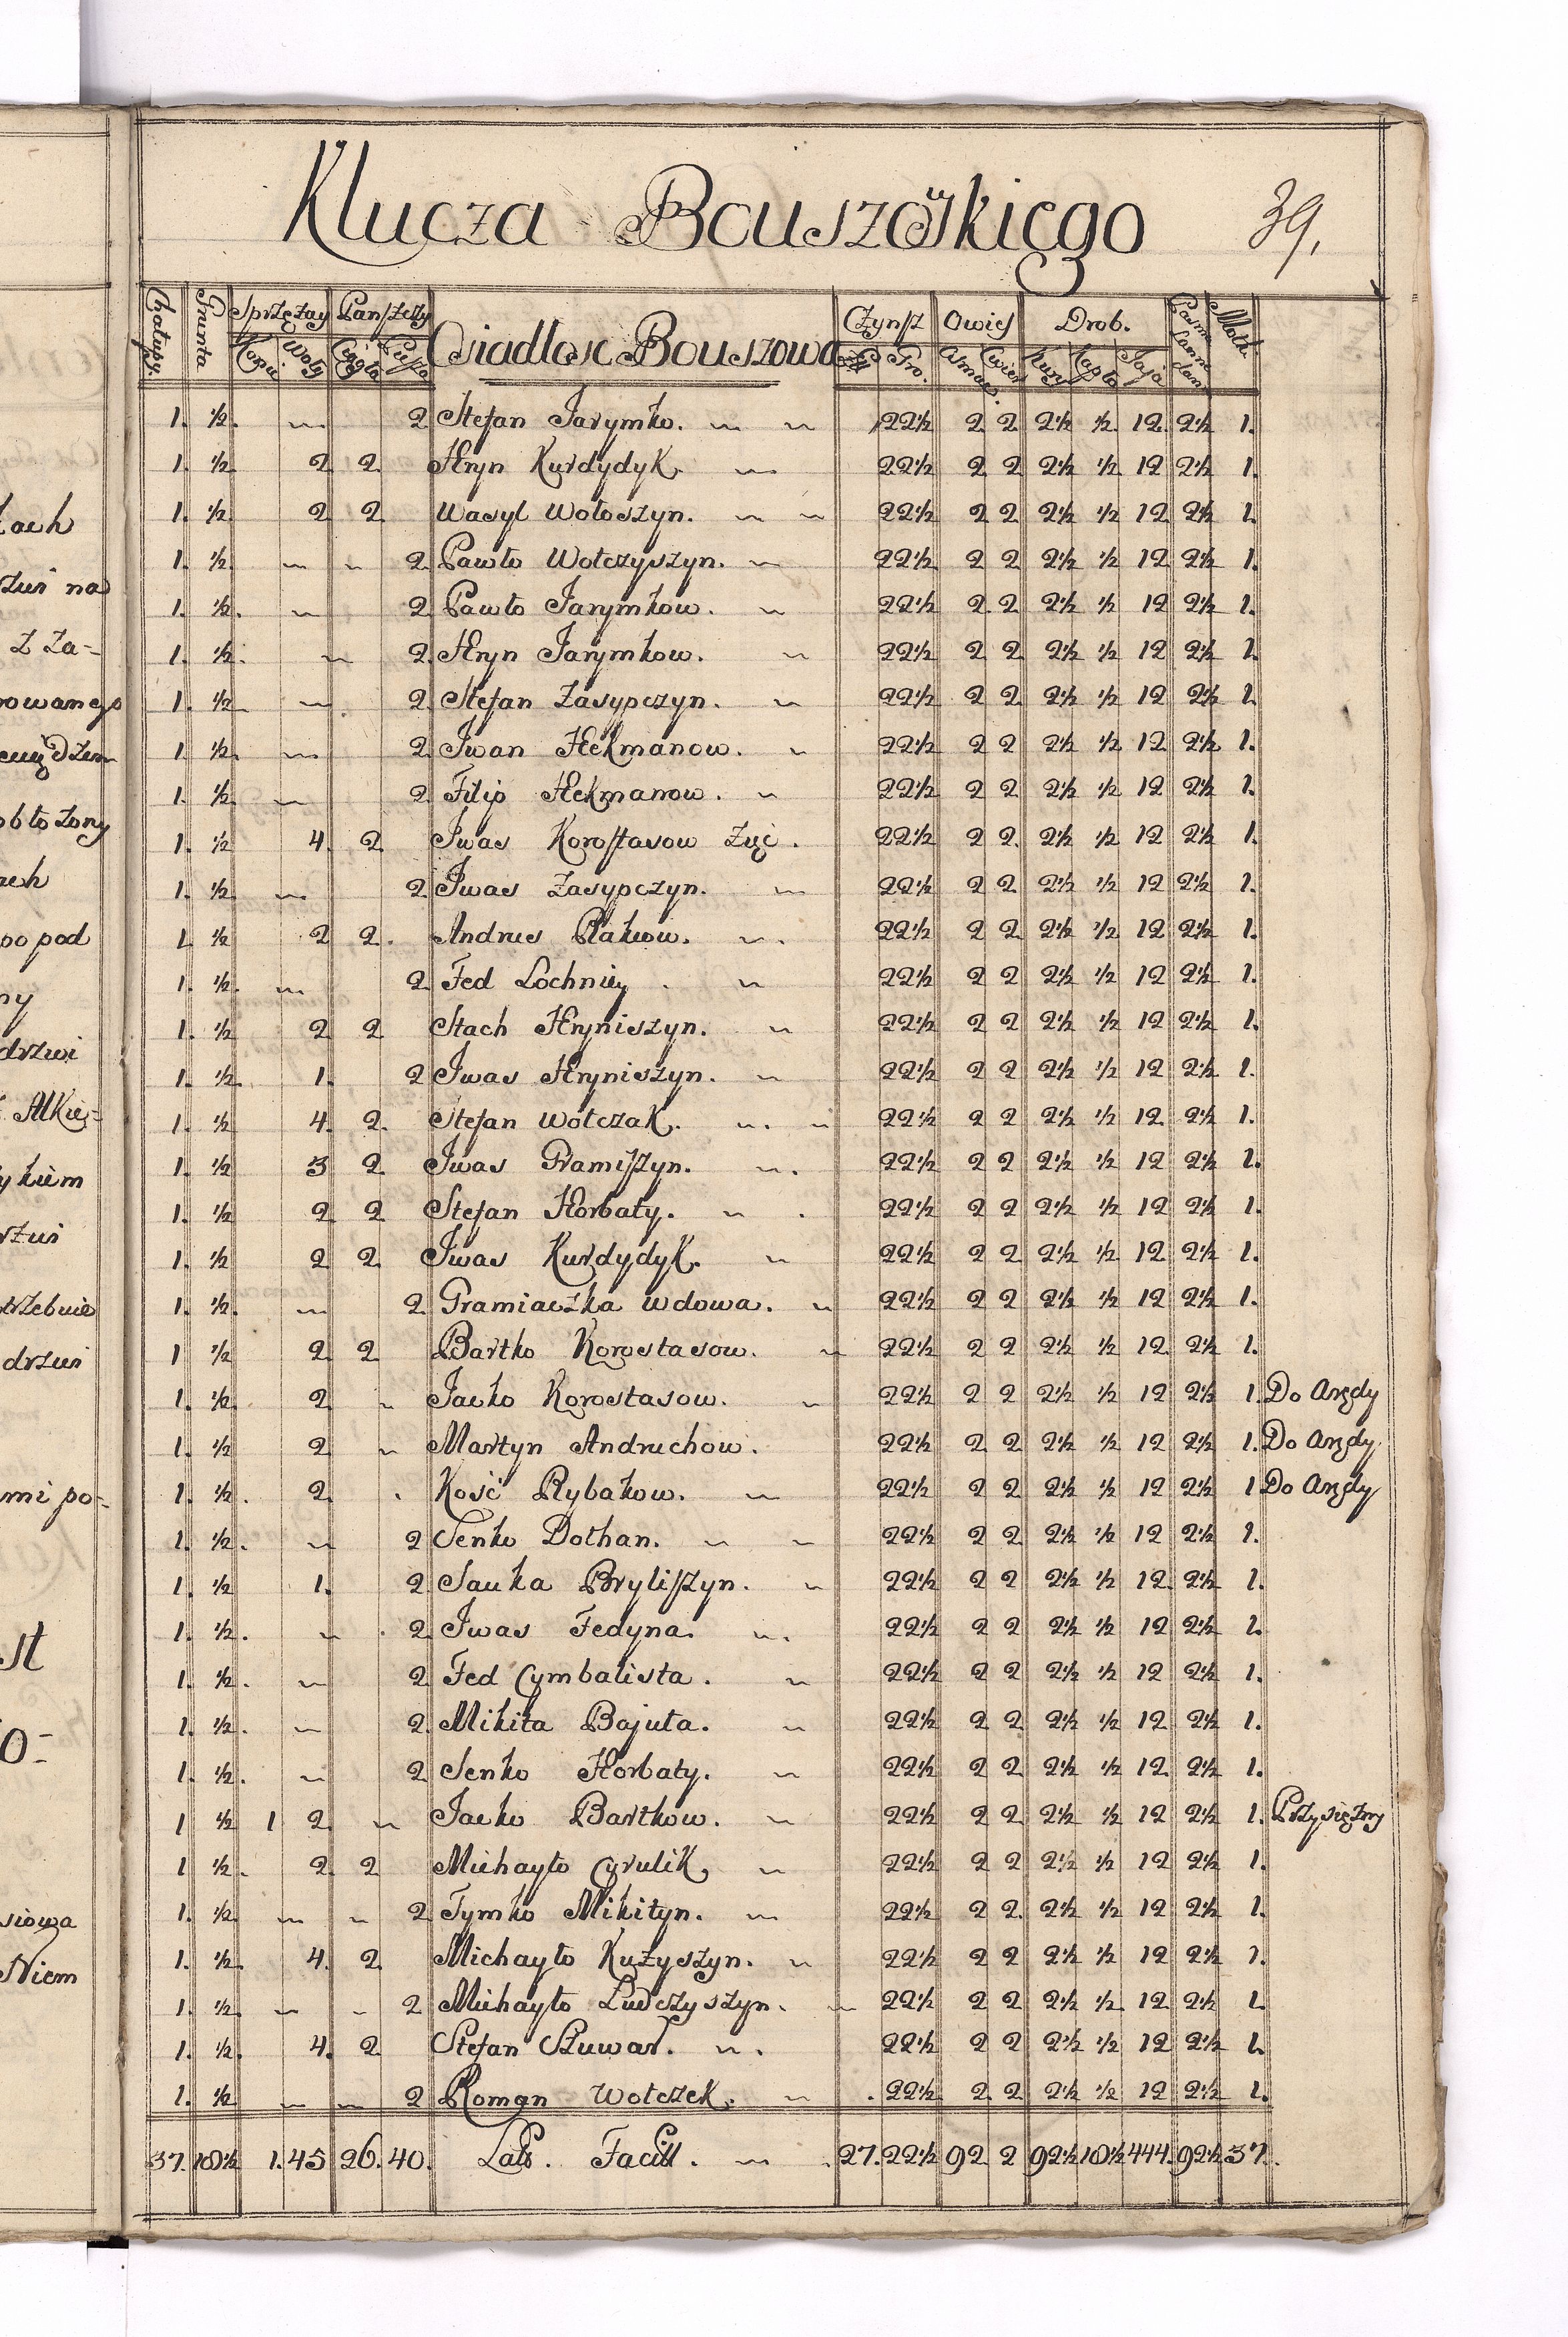 ach
zui na
z za-
rowanego
obłożony
ach
po pod
ny
drzwi
Alkie-
ykiem
rzui
trzebnie
drzui
mi po-
st
o-
siowa
Niem
Klucza Bouszowskiego 39.
Chałupy. Grunta Sprzężay Panszczyzny Osiadłosc Bouszowa Czynsz Owies Drob. Motki
Konie Woły Ciągła Piesza Zł. Gro. Kury Kapło Jaja
1. ½. ~ 2 Stefan Jarymko. ~ ~ 22½ 2 2 2½ ½ 12 2½ 1.
1. ½ 2 2 Hryn Kurdydyk. ~ 22½ 2 2 2½ ½ 12 2½ 1.
1. ½ 2 2 Wasyl Wołoszyn. ~ ~ 22½ 2 2 2½ ½ 12 2½ 1.
1. ½ ~ ~ 2 Pawło Wołczyszyn. ~ 22½ 2 2 2½ ½ 12 2½ 1.
1. ½. ~ 2 Pawło Jarymkow. ~ 22½ 2 2 2½ ½ 12 2½ 1.
1. ½. ~ 2 Hryn Jarymkow. ~ 22½ 2 2 2½ ½ 12 2½ 1.
1. ½ ~ 2 Stefan Zasypczyn. ~ 22½ 2 2 2½ ½ 12 2½ 1.
1. ½. ~ 2 Iwan Hekmanow. ~ 22½ 2 2 2½ ½ 12 2½ 1.
1. ½. ~ 2 Filip Hekmanow. ~ 22½ 2 2 2½ ½ 12 2½ 1.
1. ½ 4 2 Iwas Korostasow Zięć. 22½ 2 2 2½ ½ 12 2½ 1.
1. ½ ~ 2 Iwas Zasypczyn. ~ 22½ 2 2 2½ ½ 12 2½ 1.
1. ½ 2 2. Andrus ~ 22½ 2 2 2½ ½ 12 2½ 1.
1. ½. ~ 2 Fed ~ 22½ 2 2 2½ ½ 12 2½ 1.
1. ½ 2 2 Stach Hryniszyn. ~ 22½ 2 2 2½ ½ 12 2½ 1.
1. ½. 1. 2 Iwas Hryniszyn. ~ 22½ 2 2 2½ ½ 12 2½ 1.
1. ½ 4. 2. Stefan Wołczak. ~ ~ 22½ 2 2 2½ ½ 12 2½ 1.
1. ½ 3 2 Iwas Gramiszyn. ~ 22½ 2 2 2½ ½ 12 2½ 1.
1. ½ 2 2 Stefan Horbaty. ~ 22½ 2 2 2½ ½ 12 2½ 1.
1. ½ 2 2 Iwas Kurdydyk. ~ 22½ 2 2 2½ ½ 12 2½ 1.
1. ½. ~ 2 Gramiaczka Wdowa. ~ 22½ 2 2 2½ ½ 12 2½ 1.
1 ½ 2 2 Bartko Korostasow. ~ 22½ 2 2 2½ ½ 12 2½ 1.
1. ½. 2 ~ Jacko Korostasow. ~ 22½ 2 2 2½ ½ 12 2½ 1. Do Arędy
1. ½ 2 ~ Martyn Andruchow. 22½ 2 2 2½ ½ 12 2½ 1. Do Arędy.
1. ½. 2. . Kość Rybakow. ~ 22½ 2 2 2½ ½ 12 2½ 1 Do Arędy
1. ½. ~ 2 Senko Dołhan. ~ ~ 22½ 2 2 2½ ½ 12 2½ 1.
1. ½ 1. 2 Sauka Bryliszyn. ~ 22½ 2 2 2½ ½ 12 2½ 1.
1. ½. ~ 2 Iwas Fedyna. ~ 22½ 2 2 2½ ½ 12 2½ 1.
1. ½. ~ 2 Fed Cymbalista. ~ 22½ 2 2 2½ ½ 12 2½ 1.
1. ½. ~ 2. Mikita Bajuta. ~ 22½ 2 2 2½ ½ 12 2½ 1.
1. ½. ~ 2 Senko Horbaty. ~ 22½ 2 2 2½ ½ 12 2½ 1.
1 ½ 1 2 ~ Jacko Bartkow. ~ 22½ 2 2 2½ ½ 12 2½ 1. Przysiężny
1 ½. 2. 2 Michayło Cyrulik, ~ 22½ 2 2 2½ ½ 12 2½ 1.
1. ½. ~ ~ 2 Tymko Mikityn. ~ 22½ 2 2 2½ ½ 12 2½ 1.
1. ½. 4. 2. Michayło Kużyszyn. ~ 22½ 2 2 2½ ½ 12 2½ 1.
1. ½. ~ ~ 2 Michayło Ludczyszyn. ~ 22½ 2 2 2½ ½ 12 2½ 1.
1. ½. 4. 2 Stefan Szuwar. ~ 22½ 2 2 2½ ½ 12 2½ 1.
1. ½ ~ ~ 2 Roman Wołczek. ~ 22½ 2 2 2½ ½ 12 2½ 1.
37. 18½ 1. 45 26. 40. Latus Facit. ~ 27. 22½ 92 2 92½ 18½ 444. 92½ 37.